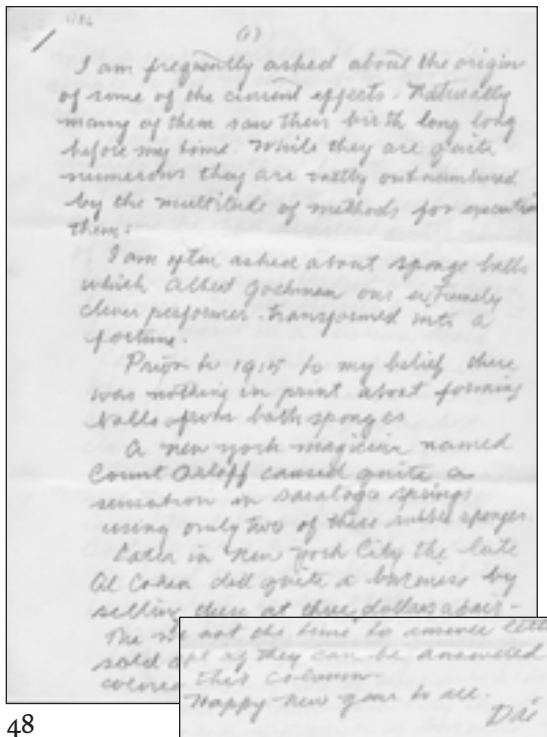 1/86
(1)
I am frequently asked about the origin
of some of the current effects. Naturally
many of them saw their birth long long
before my time. While they are quite
numerous they are vastly outnumbered
by the multitude of methods for
them:
I am often asked about sponge balls
which Albert Goshman our extremely
clever performer transformed into a
fortune.
Prior to 1915 to my belief there
was nothing in print about forming
balls from bath sponges
A new york magician named
Count Orloff caused quite a
sensation in Saratoga Springs
using only two of these rubber sponges.
Later in New York City the late
Al Cohen did quite a business by
selling these at three dollars a pair-
The
sold
colored
not the time to answer
if they can be answered
this column
Happy new year to all.
Dai
48